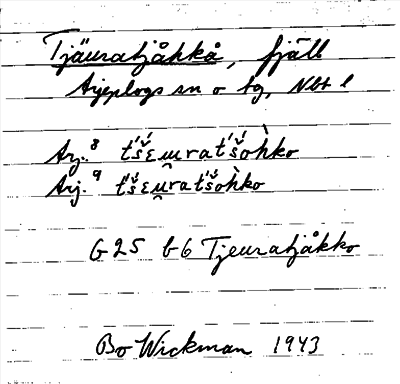 Tjäuratjåkkå, fjäll
Arjeplogs sn o tg, Nbt l
Arj. 8 t́š́ɛu̯rat́š́oh̀ko
Arj. 9 t́š́ɛu̯rat́š́oh̀ko
G 25 b6 Tjeuratjåkko
Bo Wickman 1943